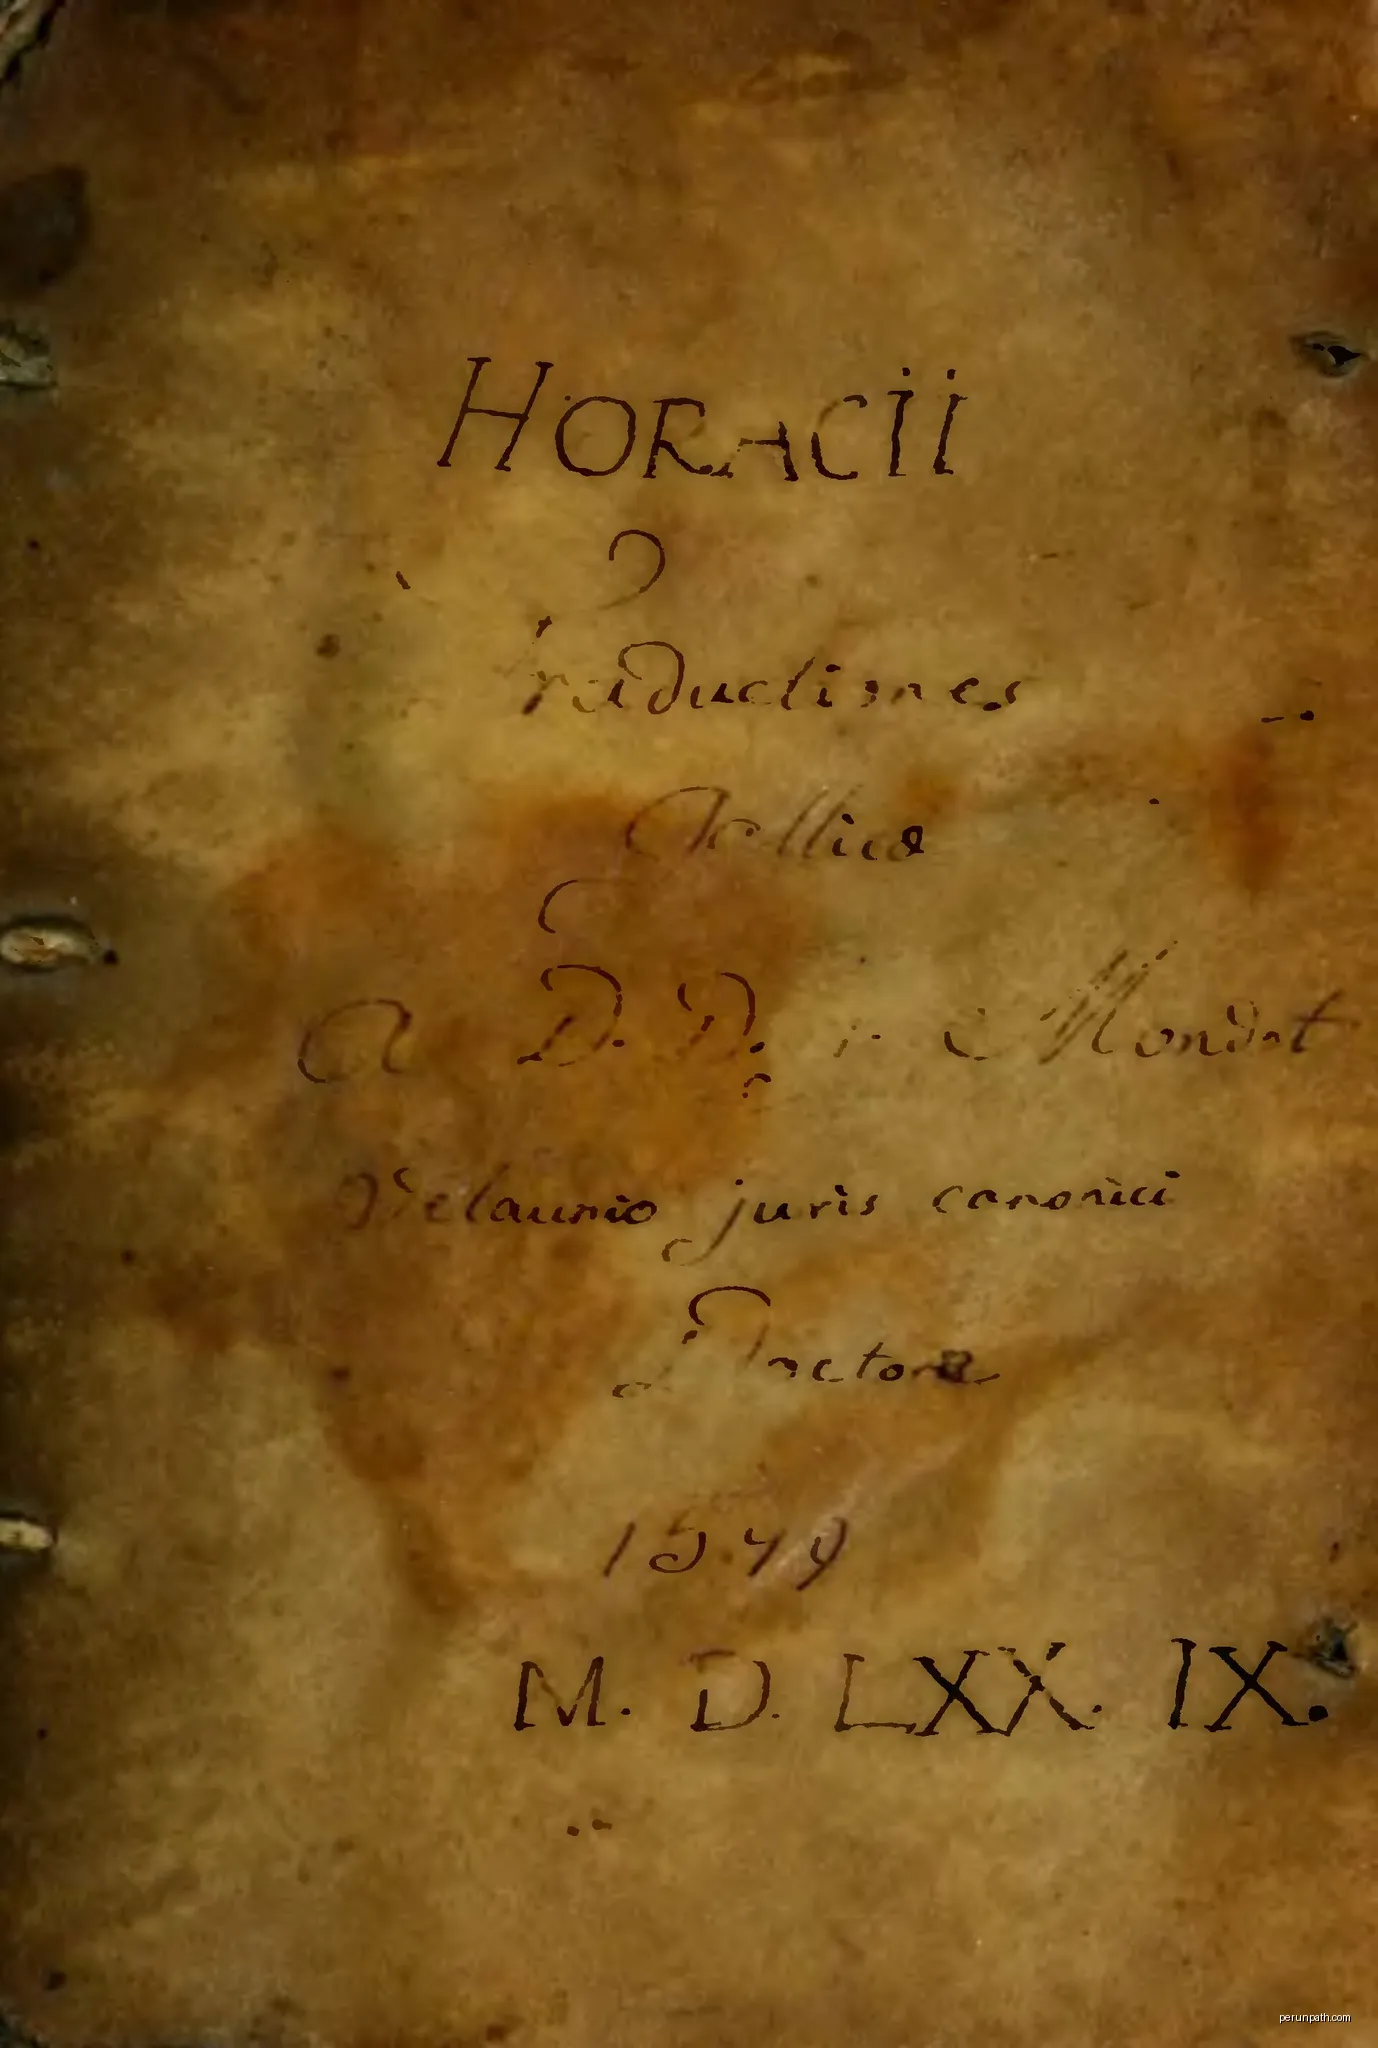 HORACII
Traductiones
Gallicæ
A D. D. Mondot
Velaunio juris canonici
Doctore
1579
M. D. LXX. IX.
perunpath.com